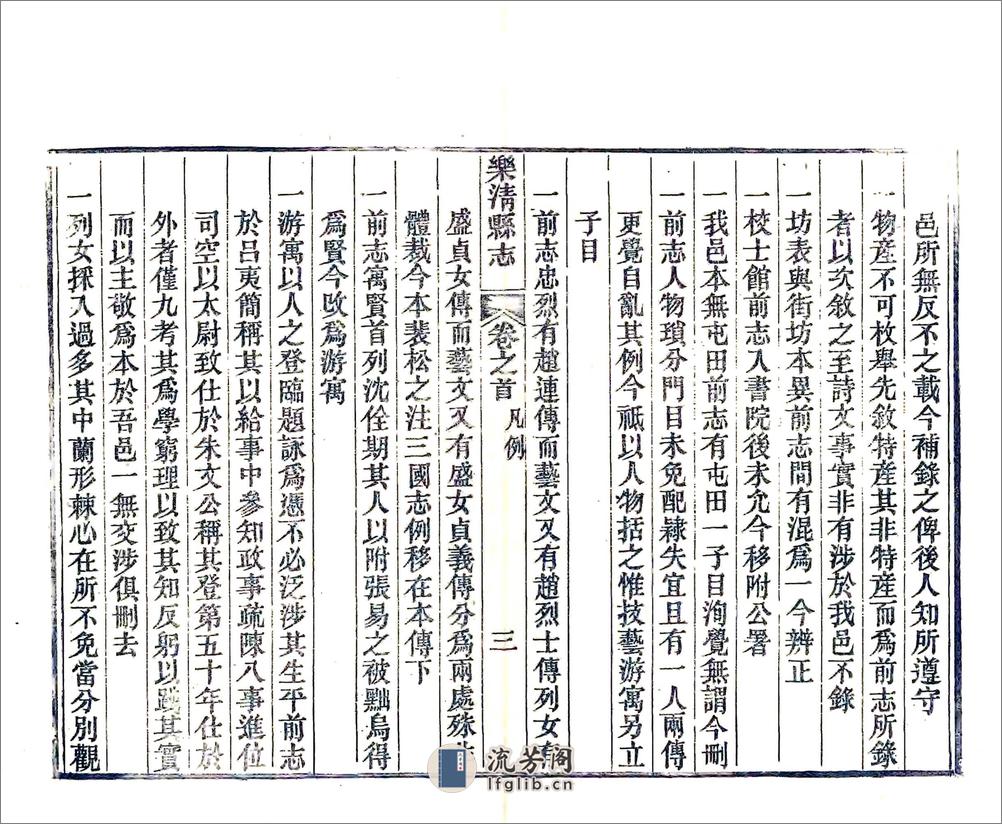 邑所無反不之載今補錄之俾後人知所遵守
一物產不可枚舉先敘特產其非特產而爲前志所錄
者以次敘之至詩文事實非有涉於我邑不錄
一坊表與街坊本異前志間有混爲一今辨正
一校士館前志入書院後未允今移附公署
一我邑本無屯田前志有屯田一子目洵覺無謂今刪
一前志人物瑣分門目未免配隸失宜且有一人兩傳
更覺自亂其例今祇以人物括之惟技藝游寓另立
子目
一前志忠烈有趙連傳而藝文又有趙烈士傳列女有
樂清縣志
卷之首
凡例
三
盛貞女傳而藝文又有盛女貞義傳分爲兩處殊失
體裁今本裴松之注三國志例移在本傳下
一前志寓賢首列沈佺期其人以附張易之被黜烏得
爲賢今改爲游寓
一游寓以人之登臨題詠爲憑不必泛涉其生平前志
於呂夷簡稱其以給事中參知政事疏陳八事進位
司空以太尉致仕於朱文公稱其登第五十年仕於
外者僅九考其爲學窮理以致其知反躬以踐其實
而以主敬爲本於吾邑一無交涉俱刪去
一列女採入過多其中蘭形棘心在所不免當分別觀
流芳閣
lfglib.cn